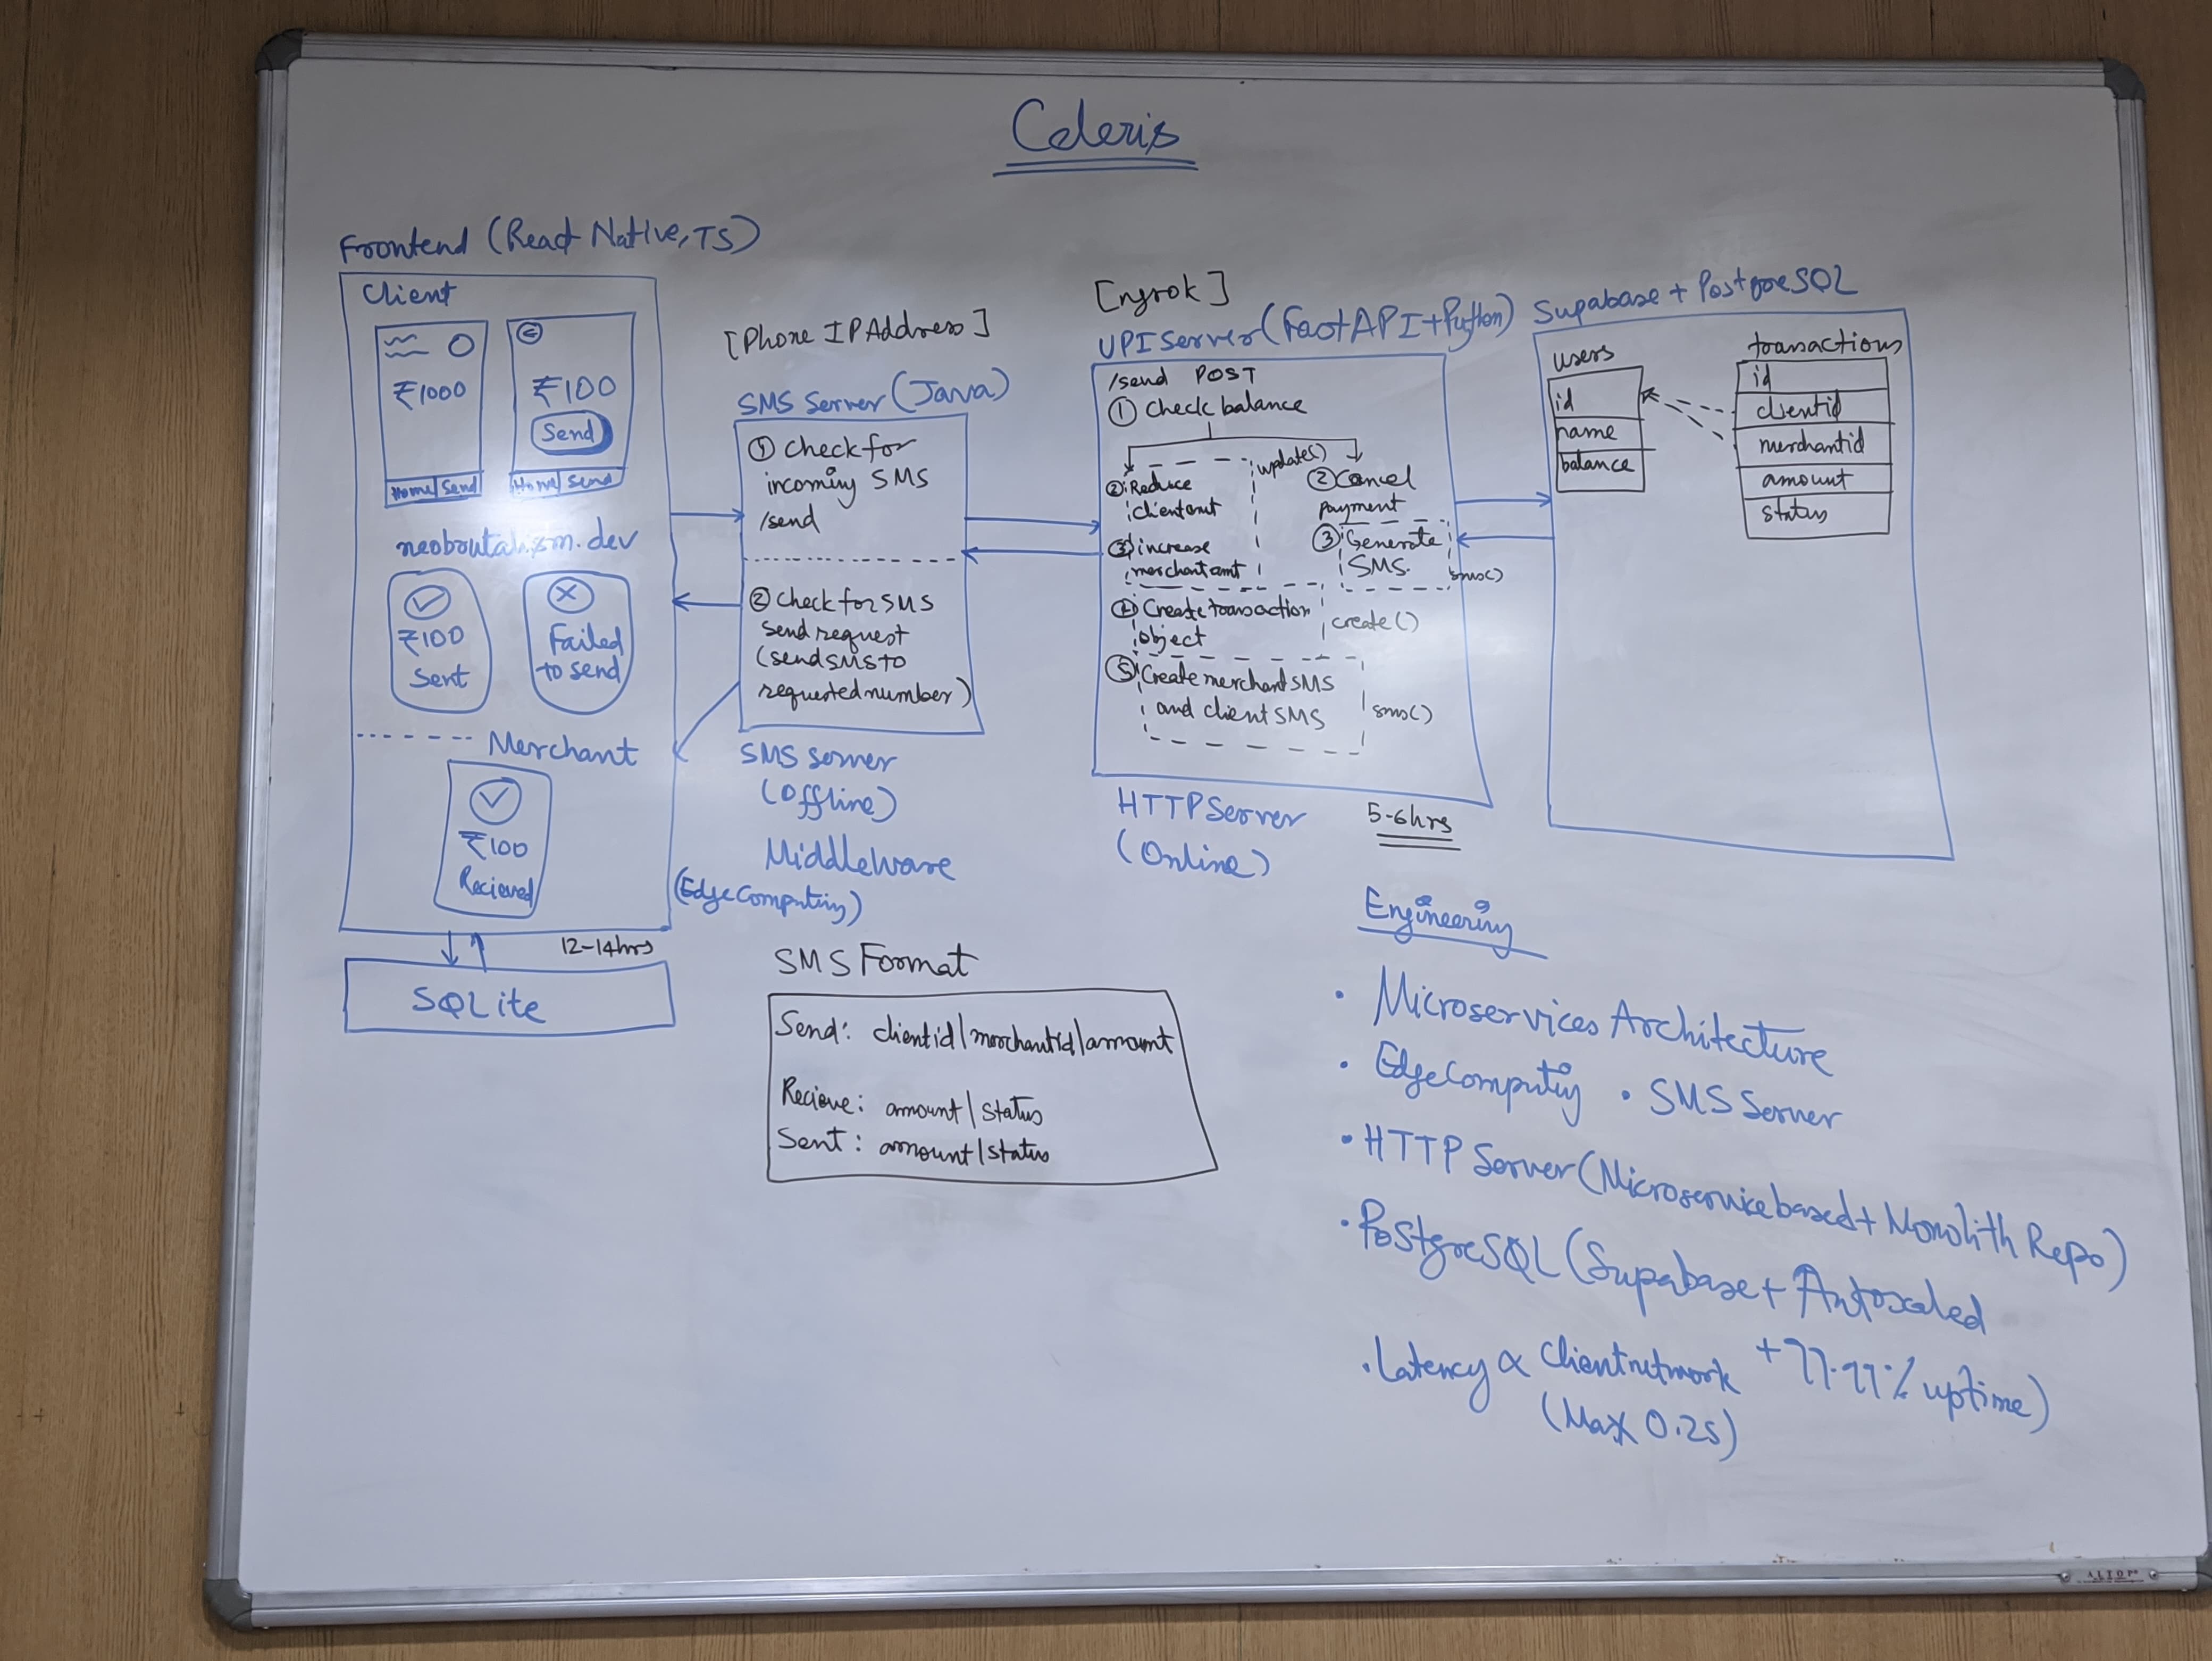 Celeris
Frontend (React Native, TS)
Client
₹1000
Home Send
₹100
Send
Home Send
neobrutalism.dev
₹100
Sent
Failed
to send
Merchant
₹100
Recieved
12-14hrs
SQLite
[Phone IP Address]
SMS Server (Java)
① Check for
incoming SMS
/send
② Check for SMS
send request
(send SMS to
requested number)
SMS Server
(Offline)
Middleware
(Edge Computing)
SMS Format
Send: clientid|merchantid|amount
Recieve: amount|status
Sent: amount|status
[ngrok]
UPI Server (FastAPI + Python)
/send POST
① Check balance
update()
② Reduce
client amt
③ increase
merchant amt
② Cancel
payment
③ Generate
SMS.
sms()
④ Create transaction
object
create()
⑤ Create merchant SMS
and client SMS
sms()
HTTP Server
(Online)
5-6hrs
Supabase + PostgreSQL
users
id
name
balance
transactions
id
clientid
merchantid
amount
status
Engineering
• Microservices Architecture
• Edge Computing • SMS Server
• HTTP Server (Microservice based + Monolith Repo)
• PostgreSQL (Supabase + Autoscaled
+ 99.99% uptime)
• Latency ∝ Client network
(Max 0.2s)
ALTOP